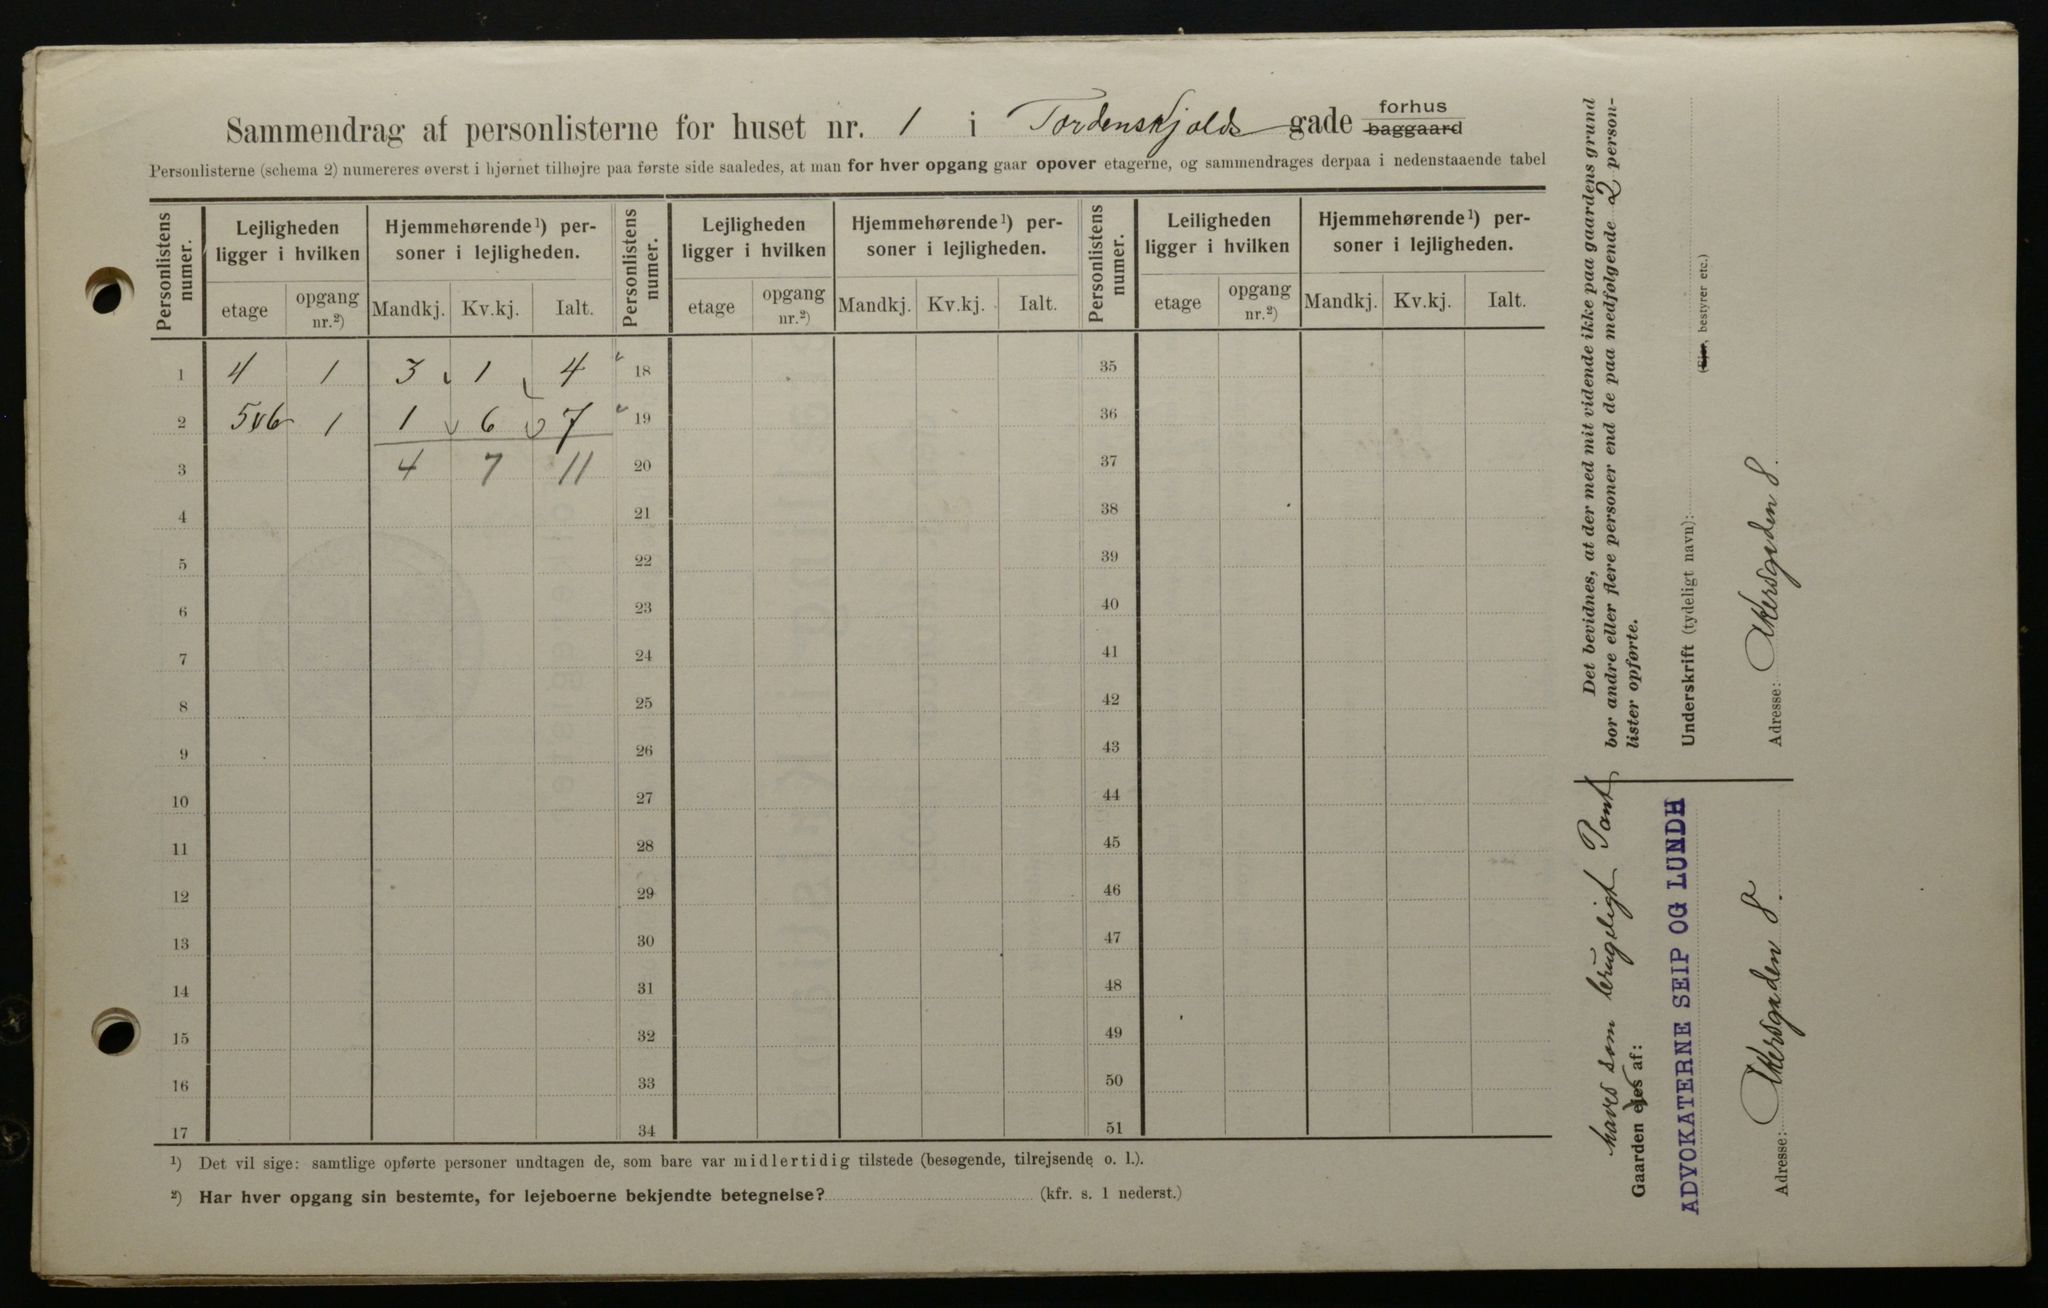 Sammendrag af personlisterne for huset nr. 1 i Tordenskjolds gade forhus baggaard
Personlisterne (schema 2) numereres øverst i hjørnet tilhøjre paa første side saaledes, at man for hver opgang gaar opover etagerne, og sammendrages derpaa i nedenstaaende tabel
Personlistens numer. Lejligheden ligger i hvilken Hjemmehørende¹) personer i lejligheden. Personlistens numer. Lejligheden ligger i hvilken Hjemmehørende¹) personer i lejligheden. Personlistens numer. Leiligheden ligger i hvilken Hjemmehørende¹) personer i lejligheden.
etage opgang nr.²) Mandkj. Kv.kj. Ialt. etage opgang nr.²) Mandkj. Kv.kj. Ialt. etage opgang nr.²) Mandkj. Kv.kj. Ialt.
1 4 1 3 1 4 18 35
2 5 1 1 6 7 19 36
3 4 7 11 20 37
4 21 38
5 22 39
6 23 40
7 24 41
8 25 42
9 26 43
10 27 44
11 28 45
12 29 46
13 30 47
14 31 48
15 32 49
16 33 50
17 34 51
¹) Det vil sige: samtlige opførte personer undtagen de, som bare var midlertidig tilstede (besøgende, tilrejsende o. l.).
²) Har hver opgang sin bestemte, for lejeboerne bekjendte betegnelse? (kfr. s. 1 nederst.)
Det bevidnes, at der med mit vidende ikke paa gaardens grund
bor andre eller flere personer end de paa medfølgende 2 person-
lister opførte.
Underskrift (tydeligt navn): (Ejer, bestyrer etc.)
Adresse: Akersgaden 8.
haves som brugeligt Pant
Gaarden ejes af:
ADVOKATERNE SEIP OG LUNDH
Adresse: Akersgaden 8.